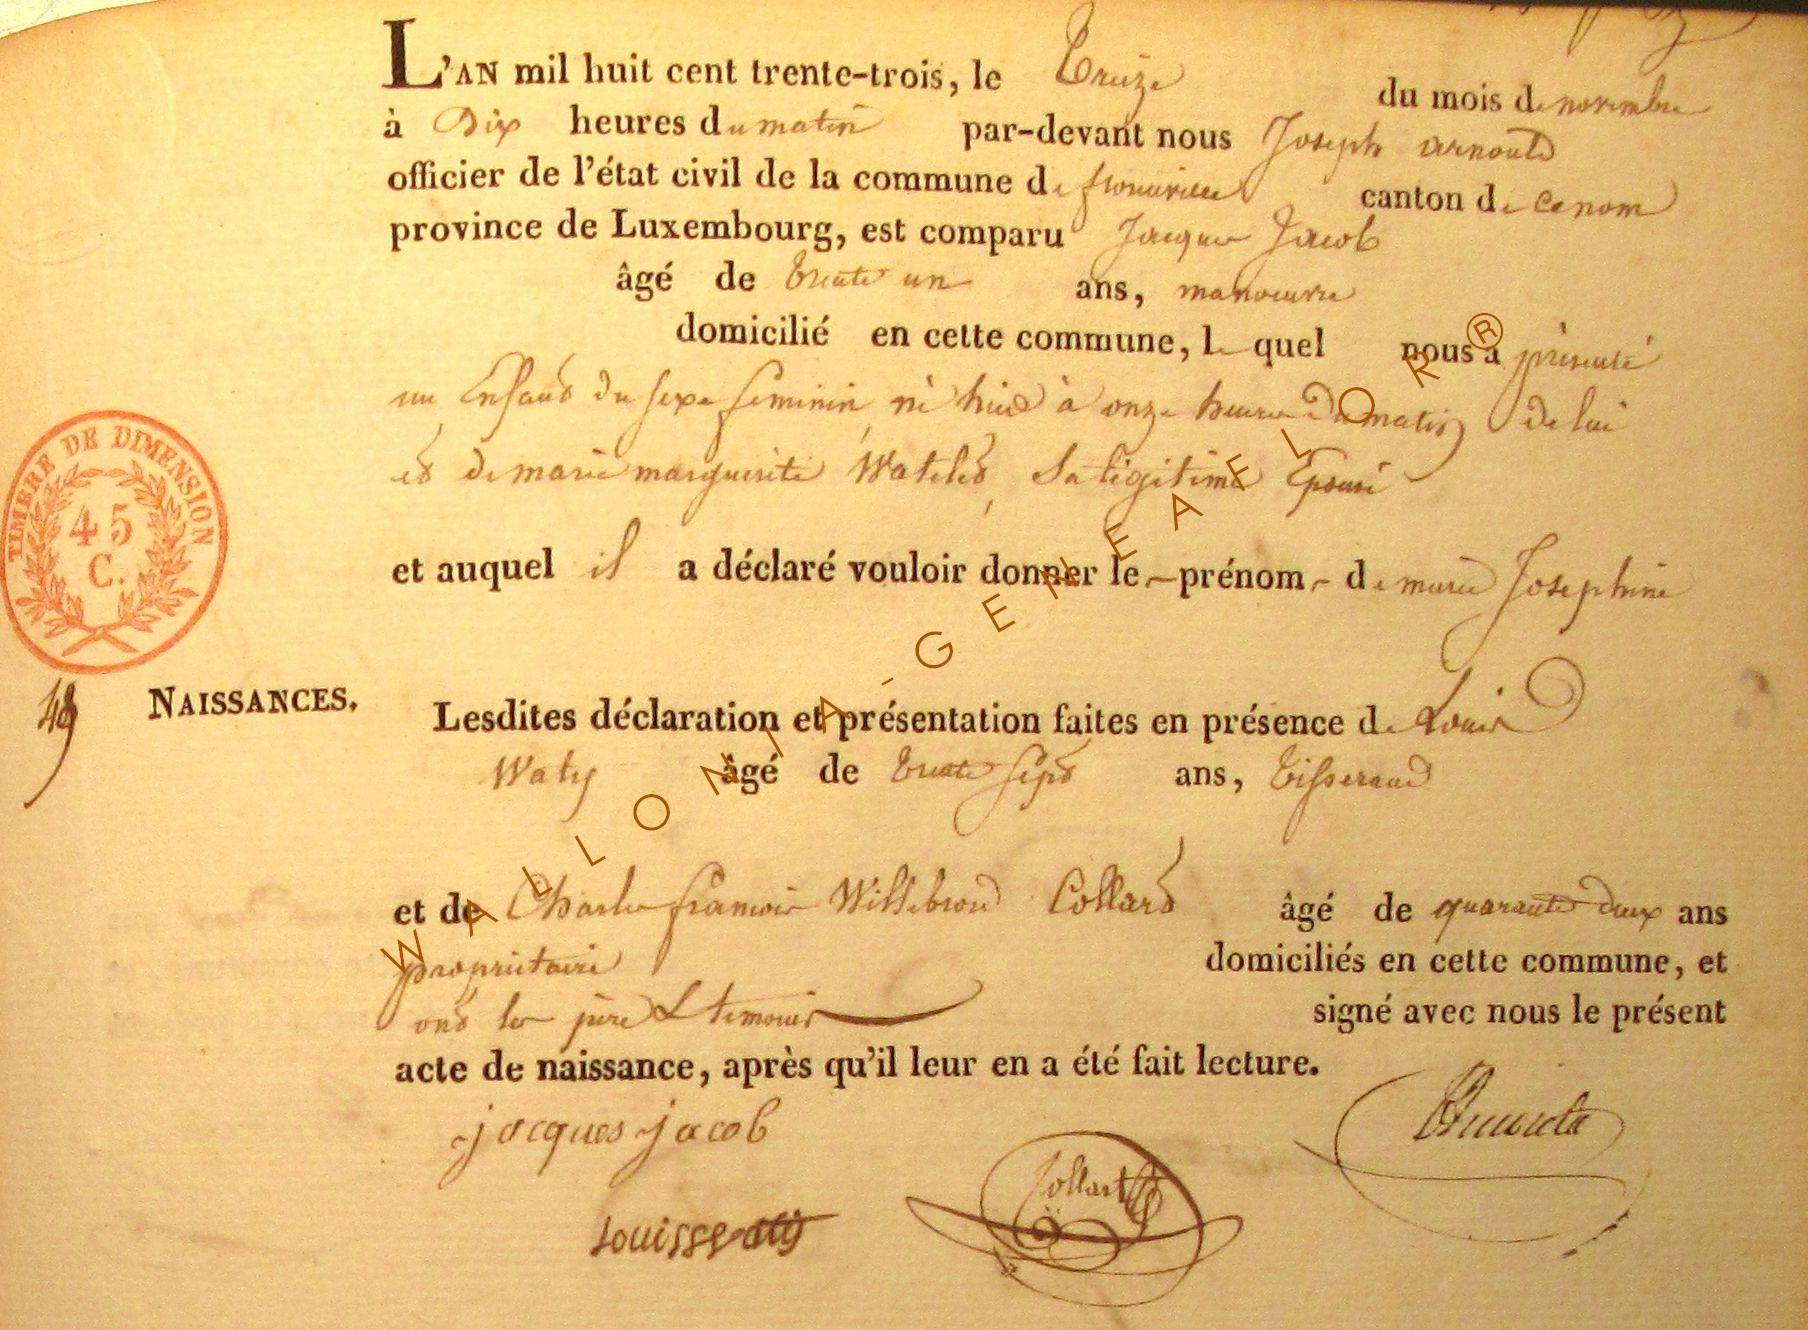 L'AN mil huit cent trente-trois, le Treize du mois de novembre
à Dix heures du matin par-devant nous Joseph arnould
officier de l'état civil de la commune de canton de
province de Luxembourg, est comparu Jacques Jacob
âgé de trente un ans, manoeuvre
domicilié en cette commune, le quel nous a présenté
un Enfant du sexe feminin, né hier à onze heures du matin de lui
et de marie marguerite Watelet, Sa légitime Epouse
et auquel il a déclaré vouloir donner le prénom de marie Josephine
TIMBRE DE DIMENSION
45
C.
48 NAISSANCES.
Lesdites déclaration et présentation faites en présence de Louis
Waty âgé de trente sept ans, tisserand
et de Charles francois Willebrord Collard âgé de quarante deux ans
propriétaire domiciliés en cette commune, et
ont les père & témoins signé avec nous le présent
acte de naissance, après qu'il leur en a été fait lecture.
jacques jacob
Collart
WALLONIA-GENEAFLOR®